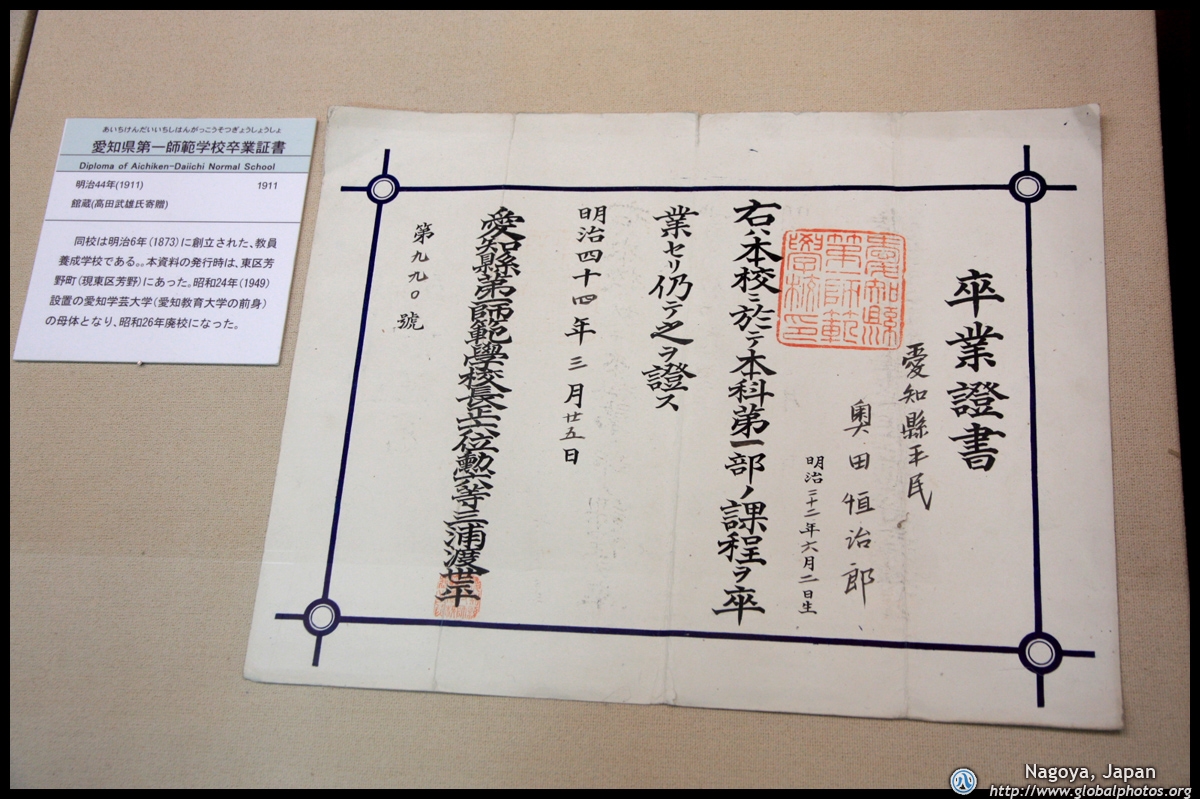 あいちけんだいいちしはんがっこうそつぎょうしょうしょ
愛知県第一師範学校卒業証書
Diploma of Aichiken-Daiichi Normal School
明治44年(1911) 1911
館蔵(高田武雄氏寄贈)
同校は明治6年(1873)に創立された、教員
養成学校である。。本資料の発行時は、東区芳
野町(現東区芳野)にあった。昭和24年(1949)
設置の愛知学芸大学(愛知教育大学の前身)
の母体となり、昭和26年廃校になった。
卒業證書
愛知縣平民
奥田恒治郎
明治二十二年六月二日生
愛知縣
第一師範
學校印
右ハ本校ニ於テ本科第一部ノ課程ヲ卒
業セリ仍テ之ヲ證ス
明治四十四年三月廿五日
愛知縣第一師範學校長正六位勲六等三浦渡世平
第九九〇號
Nagoya, Japan
http://www.globalphotos.org